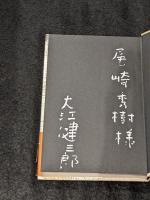 尾崎秀樹様
大江健三郎